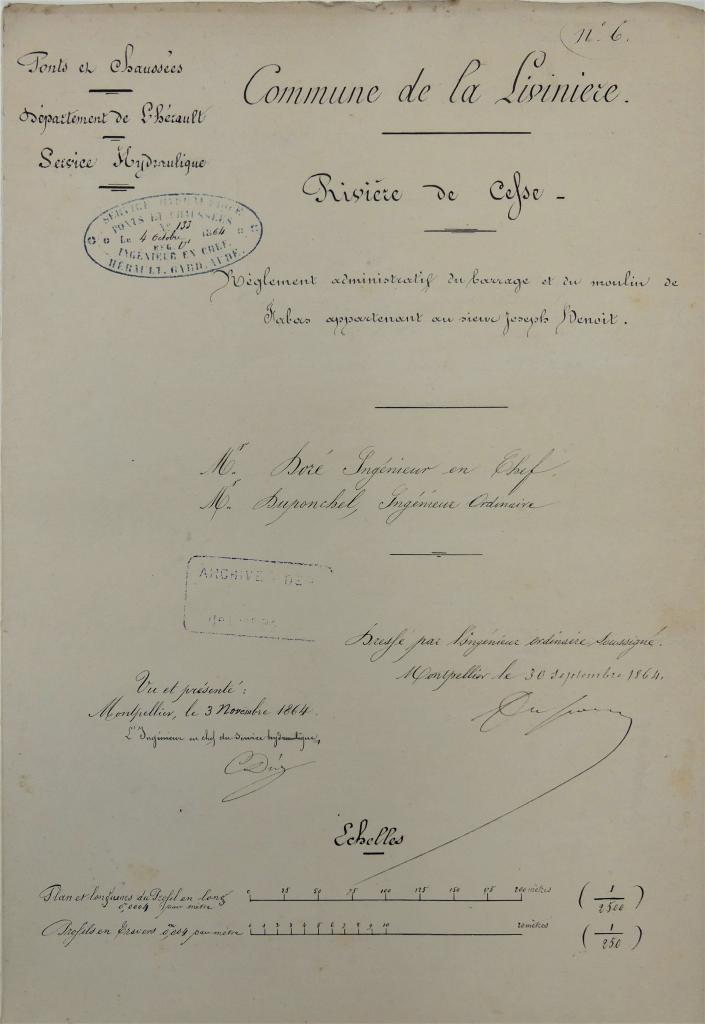 n° 6.
Ponts et Chaussées
Département de L'hérault
Service Hydraulique
Commune de la Livinière.
Rivière de Cesse -
SERVICE HYDRAULIQUE
PONTS ET CHAUSSÉES
N° 133
Le 4 Octobre 1864
REG.
INGÉNIEUR EN CHEF
HÉRAULT, GARD, AUDE.
Règlement administratif du barrage et du moulin de
appartenant au sieur Joseph Benoit.
Mr. Doré Ingénieur en Chef.
Mr. Duponchel, Ingénieur Ordinaire
ARCHIVES DE
Dressé par l'ingénieur ordinaire soussigné.
Montpellier le 30 septembre 1864.
Vu et présenté :
Montpellier, le 3 Novembre 1864.
L'Ingénieur en chef du service hydraulique,
Echelles
Plan et longueurs du Profil en long
0m,0004 pour mètre
0 25 50 75 100 125 150 175 200 mètres
(1/2500)
Profils en travers 0m,004 par mètre
0 1 2 3 4 5 6 7 8 9 10 20 mètres
(1/250)